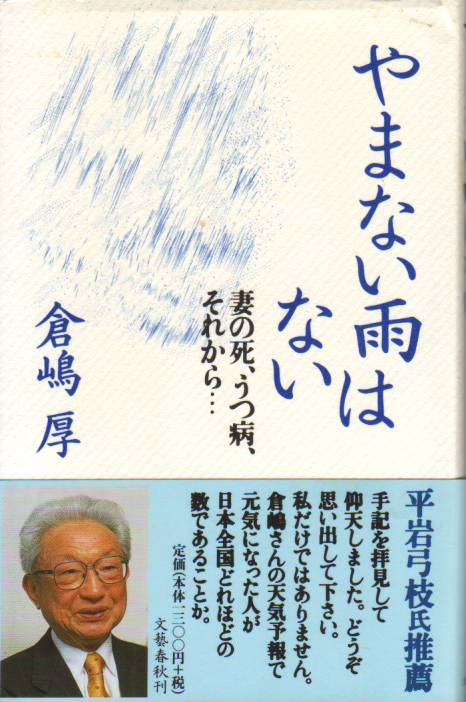 やまない雨は
ない
妻の死、うつ病、
それから…
倉嶋 厚
平岩弓枝氏推薦
手記を拝見して
仰天しました。どうぞ
思い出して下さい。
私だけではありません。
倉嶋さんの天気予報で
元気になった人が
日本全国どれほどの
数であることか。
定価(本体一二〇〇円+税)
文藝春秋刊